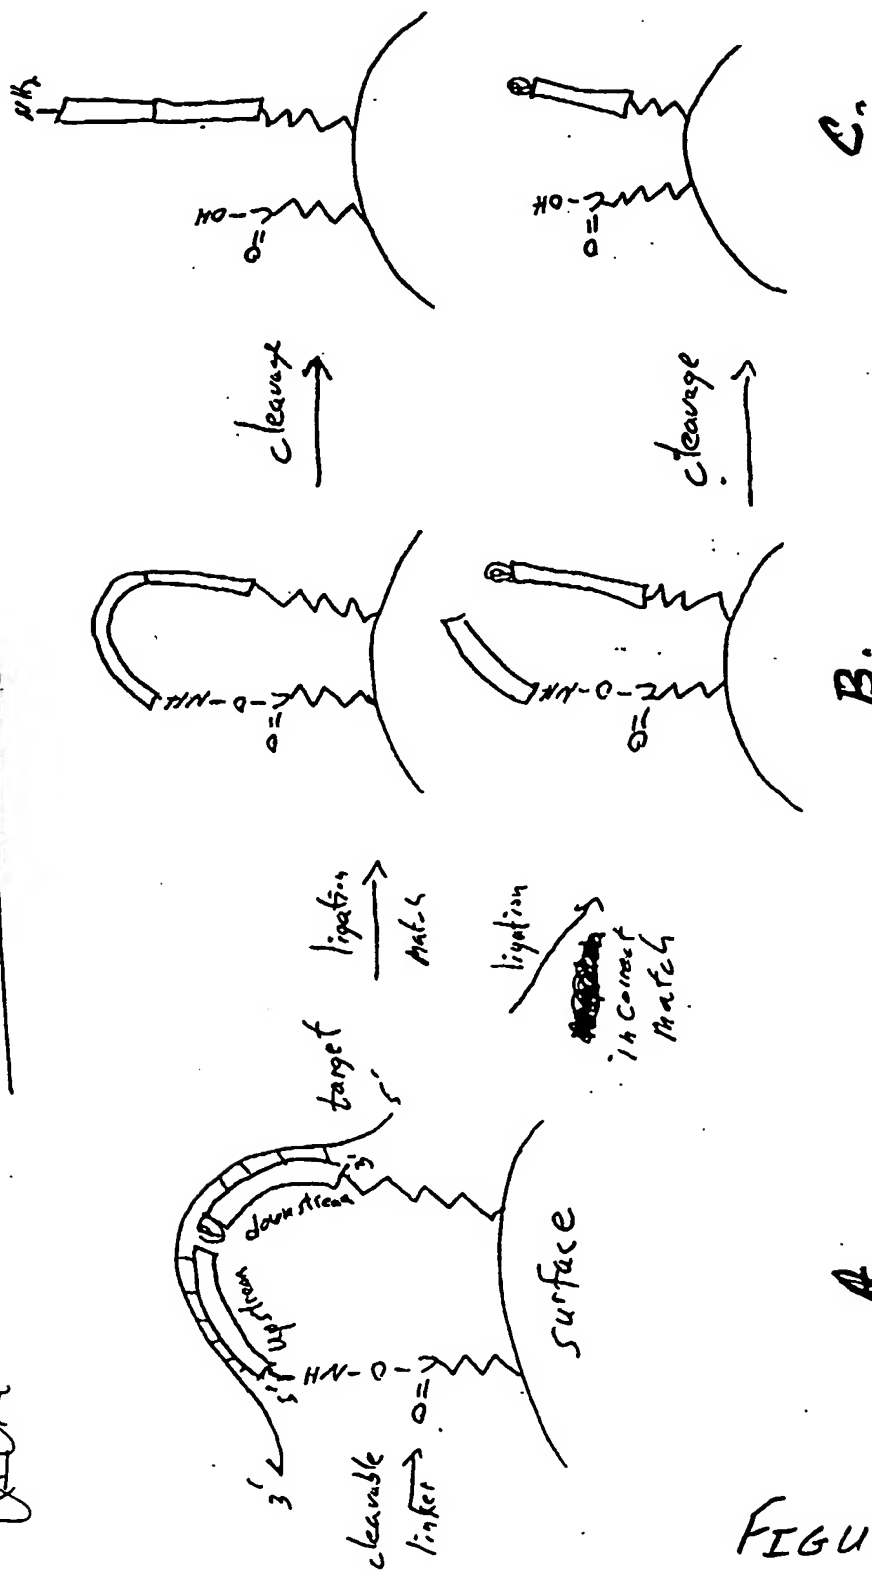 3'
cleavable
linker
O=C-O-NH
5'
upstream
P
downstream
3'
target
5'
surface
A
ligation
match
ligation
incorrect
match
O=C-O-NH
O=C-O-NH
P
B.
cleavage
cleavage
NH2
O=C-OH
P
O=C-OH
C.
FIGU